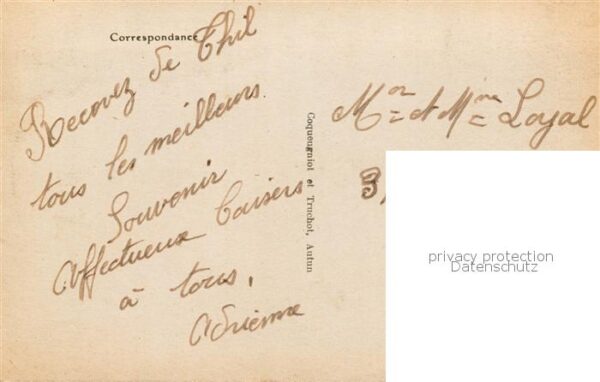 Correspondance
Recevez de Thil
tous les meilleurs
Souvenir
Affectueux baisers
à tous,
Adrienne
Coqueugniot et Truchot, Autun
Mor & Mme Loyal
3,
privacy protection
Datenschutz